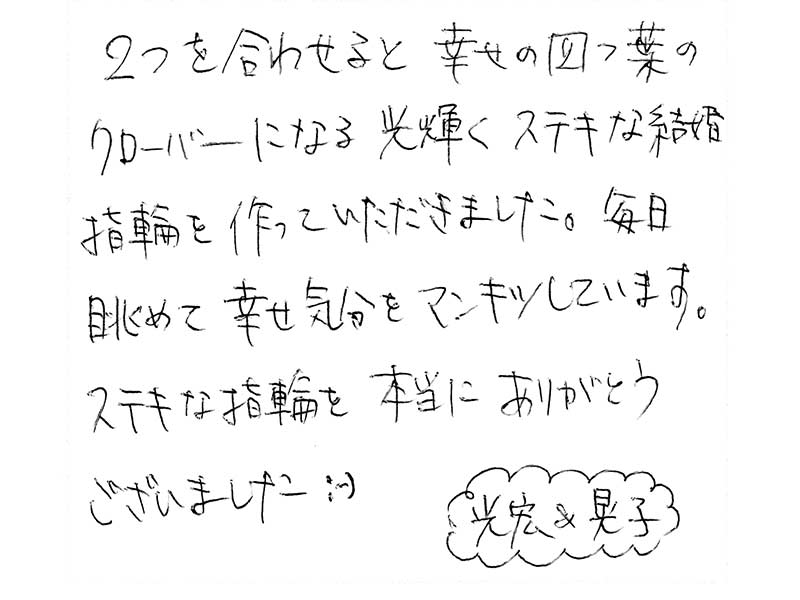 2つを合わせると 幸せの四つ葉の
クローバーになる 光輝く ステキな結婚
指輪を 作っていただきました。毎日
眺めて 幸せ気分を マンキツしています。
ステキな指輪を 本当に ありがとう
ございました :-)
光宏&晃子